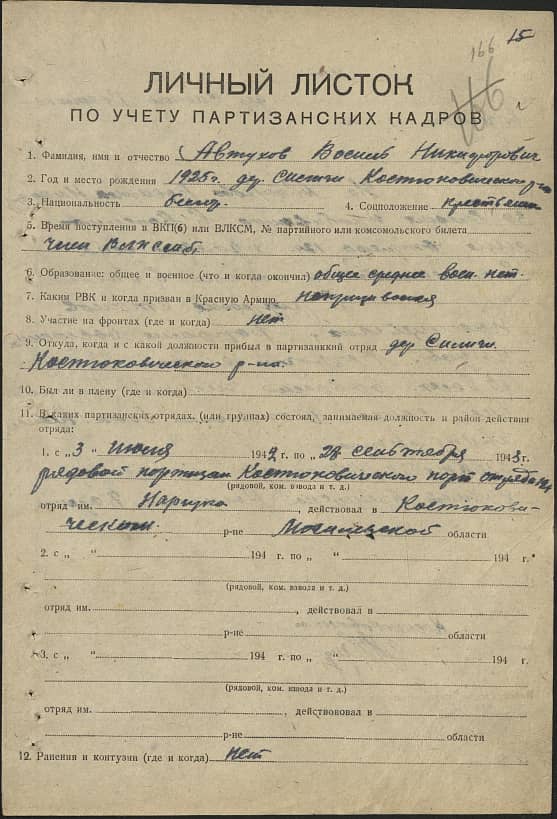 166 15
166
ЛИЧНЫЙ ЛИСТОК
ПО УЧЕТУ ПАРТИЗАНСКИХ КАДРОВ
1. Фамилия, имя и отчество Автухов Василь Никифорович
2. Год и место рождения 1925 г. дер. Силичи Костюковического р-на
3. Национальность белор. 4. Соцположение крестьянин
5. Время поступления в ВКП(б) или ВЛКСМ, № партийного или комсомольского билета
член
6. Образование: общее и военное (что и когда окончил) общее среднее воен. нет.
7. Каким РВК и когда призван в Красную Армию
8. Участие на фронтах (где и когда) нет
9. Откуда, когда и с какой должности прибыл в партизанккий отряд дер Силичи
Костюковического р-на.
10. Был ли в плену (где и когда)
11. В каких партизанских отрядах, (или группах) состоял, занимаемая должность и район действия
отряда:
1. с „3 " июня 1942 г. по „28 сентября 1943 г.
рядовой партизан Костюковического парт отряда №
(рядовой, ком. взвода и т. д.)
отряд им. , действовал в Костюкови-
ческом р-не Могилевской области
2. с „ " 194 г. по „ " 194 г.
(рядовой, ком. взвода и т. д.)
отряд им. , действовал в
р-не области
3. с „ " 194 г. по „ " 194 г.
(рядовой, ком. взвода и т. д.)
отряд им. , действововал в
р-не области
12. Ранения и контузии (где и когда) нет